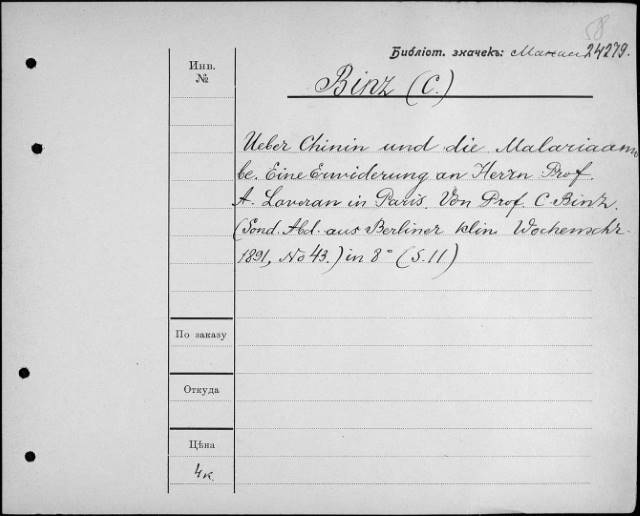 58
Библіот. значекъ: 24279.
Инв.
№
Binz (C.)
Ueber Chinin und die Malariaamö
be. Eine Erwiderung an Herrn Prof.
A. Laveran in Paris. Von Prof. C. Binz.
(Sond. Abd. aus Berliner klin. Wochenschr.
1891, No 43.) in 8° (S. 11)
По заказу
Откуда
Цѣна
4к.